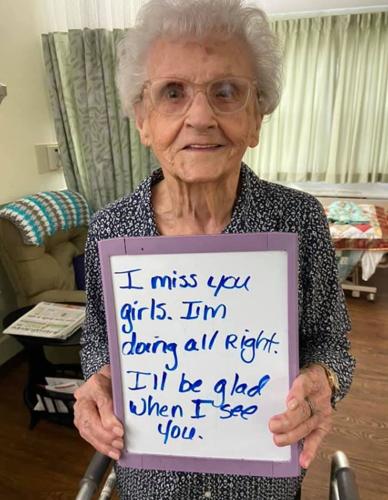 I miss you
girls. I'm
doing all Right.
I'll be glad
when I see
you.